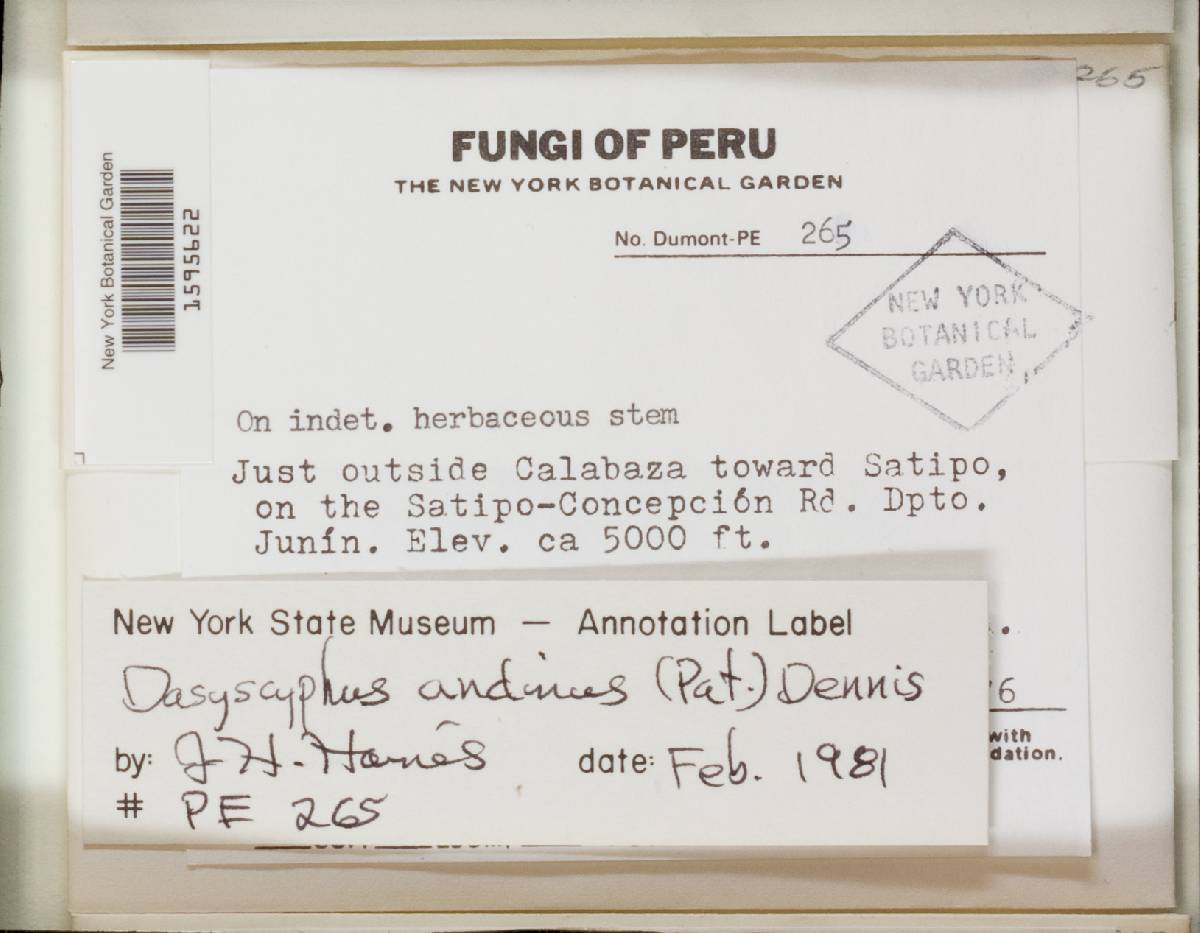 265
New York Botanical Garden
1595622
FUNGI OF PERU
THE NEW YORK BOTANICAL GARDEN
No. Dumont-PE 265
NEW YORK
BOTANICAL
GARDEN
On indet. herbaceous stem
Just outside Calabaza toward Satipo,
on the Satipo-Concepción Rd. Dpto.
Junín. Elev. ca 5000 ft.
New York State Museum — Annotation Label
Dasyscyphus andinus (Pat.) Dennis
by: J H. Haines date: Feb. 1981
# PE 265
6
with
dation.